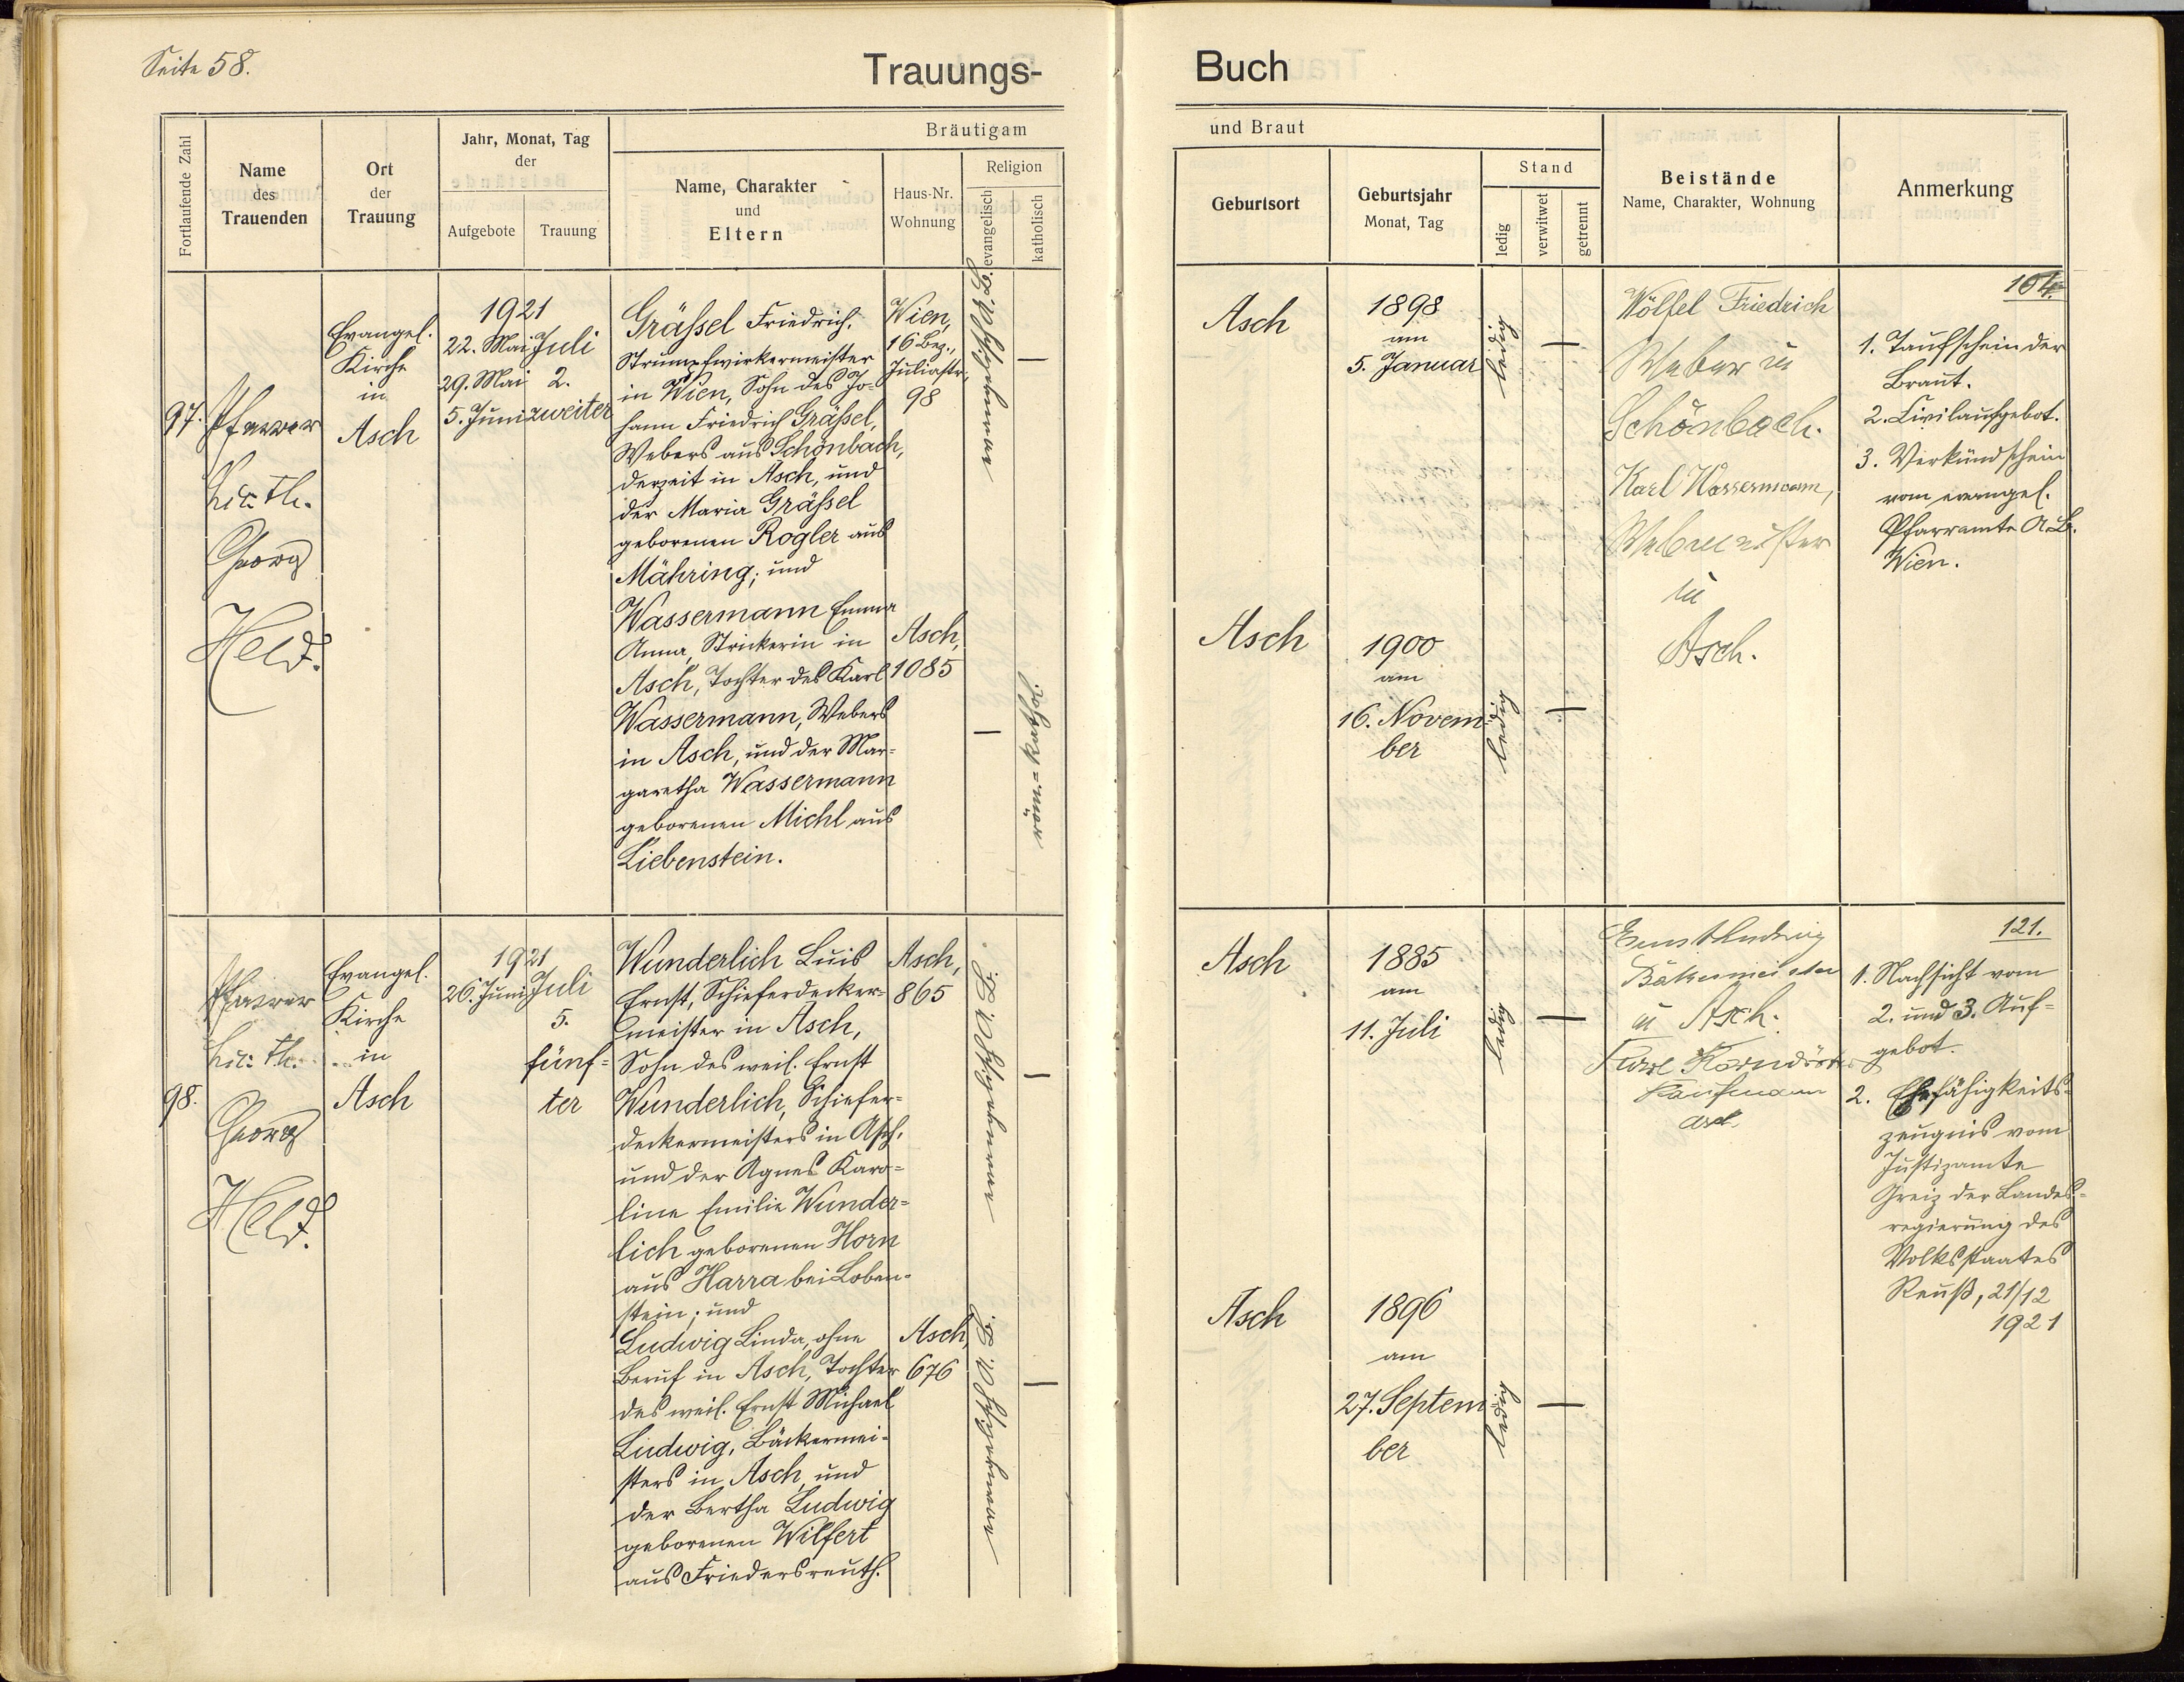 Seite 58.
Trauungs-
Buch
Fortlaufende Zahl
Name
des
Trauenden
Ort
der
Trauung
Jahr, Monat, Tag
der
Aufgebote
Trauung
Bräutigam
Name, Charakter
und
Eltern
Haus-Nr.
Wohnung
Religion
evangelisch
katholisch
und Braut
Geburtsort
Geburtsjahr
Monat, Tag
Stand
ledig
verwitwet
getrennt
Beistände
Name, Charakter, Wohnung
Anmerkung
97.
Pfarrer
Lic. Th.
Georg
Held.
Evangel.
Kirche
in
Asch
1921
22. Mai
29. Mai
5. Juni
Juli
2.
zweiter
Gräßel Friedrich,
Strumpfwirkermeister
in Wien, Sohn des Jo=
hann Friedrich Gräßel,
Webers aus Schönbach,
derzeit in Asch, und
der Maria Gräßel
geborenen Rogler aus
Mähring; und
Wassermann Emma
Anna, Strickerin in
Asch, Tochter des Karl
Wassermann, Webers
in Asch, und der Mar=
garetha Wassermann
geborenen Michl aus
Liebenstein.
Wien,
16 Bez.,
Juliastr.
98
Asch,
1085
evangelisch A. B.
—
—
röm.=kathol.
Asch
1898
am
5. Januar
ledig
—
Asch
1900
am
16. Novem
ber
ledig
—
Wölfel Friedrich
Weber in
Schönbach.
Karl Wassermann,
Webmeister
in
Asch.
104.
1. Taufschein der
Braut.
2. Civilaufgebot.
3. Verkündschein
vom evangel.
Pfarramte A. B.
Wien.
98.
Pfarrer
Lic. Th.
Georg
Held.
Evangel.
Kirche
in
Asch
1921
26. Juni
Juli
5.
fünf=
ter
Wunderlich Luis
Ernst, Schieferdecker=
meister in Asch,
Sohn des weil. Ernst
Wunderlich, Schiefer=
deckermeisters in Asch,
und der Agnes Karo=
line Emilie Wunder=
lich geborenen Horn
aus Harra bei Loben=
stein; und
Ludwig Linda, ohne
Beruf in Asch, Tochter
des weil. Ernst Michael
Ludwig, Bäckermei=
sters in Asch, und
der Bertha Ludwig
geborenen Wilfert
aus Friedersreuth.
Asch,
865
Asch,
676
evangelisch A. B.
—
evangelisch A. B.
—
Asch
1885
am
11. Juli
ledig
—
Asch
1896
am
27. Septem
ber
ledig
—
Ernst Ludwig
Bäkermeister
in Asch.
Korndörfer
Kaufmann
Asch
121.
1. Nachsicht vom
2. und 3. Auf=
gebot.
2. Ehefähigkeits=
zeugnis vom
Justizamte
Greiz der Landes=
regierung des
Volksstaates
Reuß, 21/12
1921